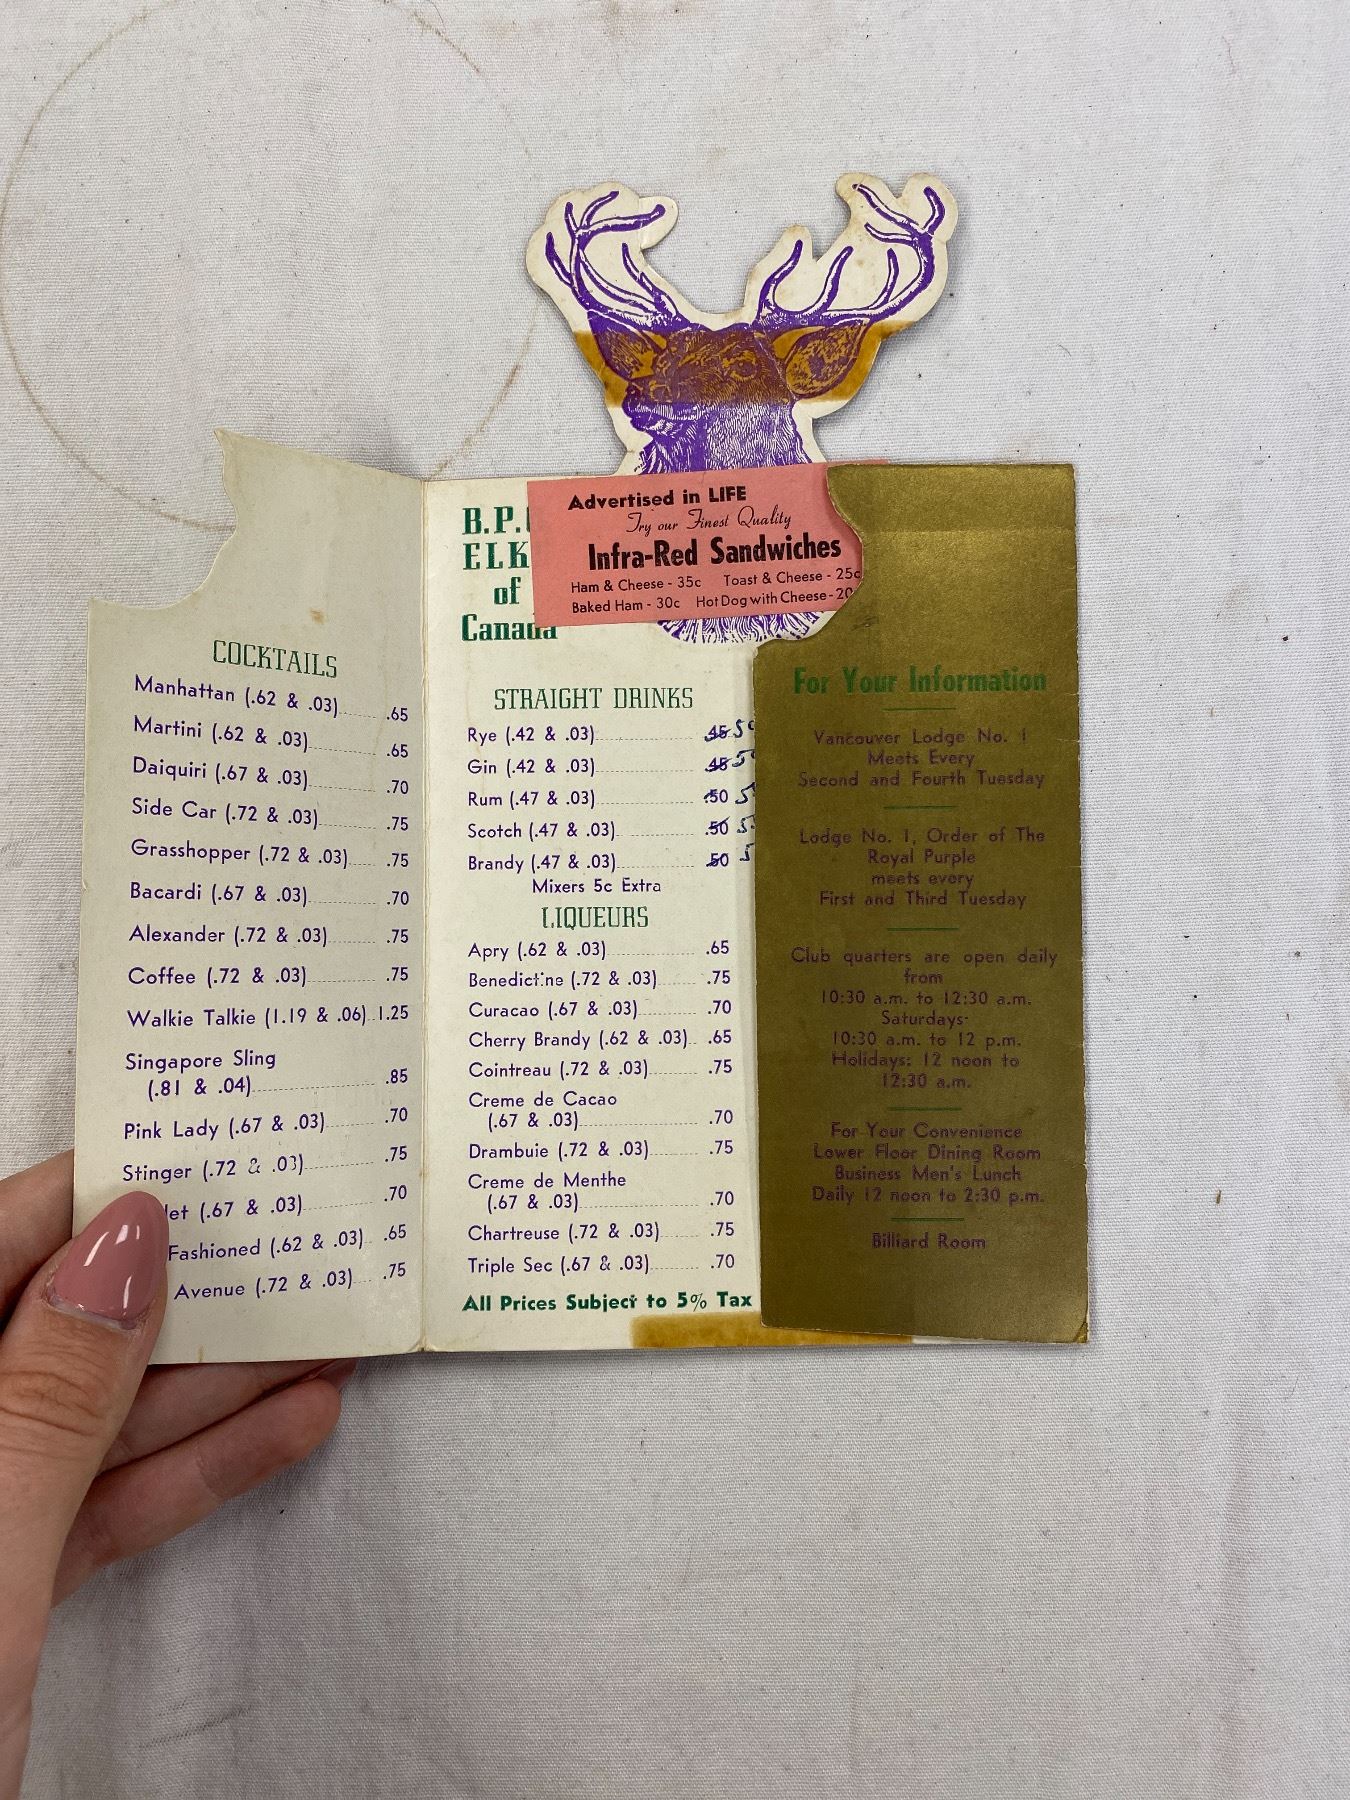 COCKTAILS
Manhattan (.62 & .03) .65
Martini (.62 & .03) .65
Daiquiri (.67 & .03) .70
Side Car (.72 & .03) .75
Grasshopper (.72 & .03) .75
Bacardi (.67 & .03) .70
Alexander (.72 & .03) .75
Coffee (.72 & .03) .75
Walkie Talkie (1.19 & .06) 1.25
Singapore Sling
(.81 & .04) .85
Pink Lady (.67 & .03) .70
Stinger (.72 & .03) .75
let (.67 & .03) .70
Fashioned (.62 & .03) .65
Avenue (.72 & .03) .75
B.P.
ELK
of
Canada
Advertised in LIFE
Try our Finest Quality
Infra-Red Sandwiches
Ham & Cheese - 35c Toast & Cheese - 25c
Baked Ham - 30c Hot Dog with Cheese - 20
STRAIGHT DRINKS
Rye (.42 & .03) .45 50
Gin (.42 & .03) .45 5
Rum (.47 & .03) .50 5
Scotch (.47 & .03) .50 5
Brandy (.47 & .03) .50 5
Mixers 5c Extra
LIQUEURS
Apry (.62 & .03) .65
Benedictine (.72 & .03) .75
Curacao (.67 & .03) .70
Cherry Brandy (.62 & .03) .65
Cointreau (.72 & .03) .75
Creme de Cacao
(.67 & .03) .70
Drambuie (.72 & .03) .75
Creme de Menthe
(.67 & .03) .70
Chartreuse (.72 & .03) .75
Triple Sec (.67 & .03) .70
All Prices Subject to 5% Tax
For Your Information
Vancouver Lodge No. 1
Meets Every
Second and Fourth Tuesday
Lodge No. 1, Order of The
Royal Purple
meets every
First and Third Tuesday
Club quarters are open daily
from
10:30 a.m. to 12:30 a.m.
Saturdays-
10:30 a.m. to 12 p.m.
Holidays: 12 noon to
12:30 a.m.
For Your Convenience
Lower Floor Dining Room
Business Men's Lunch
Daily 12 noon to 2:30 p.m.
Billiard Room